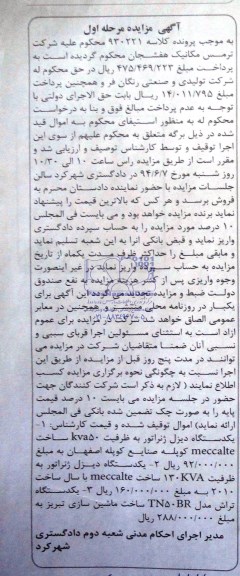 آگهی مزایده مرحله اول
به موجب پرونده کلاسه ۹۳۰۲۲۱ محکوم علیه شرکت
ترمس مکانیک هفشجان محکوم گردیده است به
پرداخت مبلغ ۴۷۵/۴۶۹/۲۲۳ ریال در حق محکوم له
شرکت تولیدی و صنعتی رنگان فر و همچنین پرداخت
مبلغ ۱۴/۰۱۱/۷۹۵ ریال بابت حق الاجرای دولتی با
توجه به عدم پرداخت مبالغ فوق و بنا به درخواست
محکوم له به منظور استیفای محکوم به اموال قید
شده در ذیل برگه متعلق به محکوم علیهم از سوی این
اجرا توقیف و توسط کارشناس توصیف و ارزیابی شد و
مقرر است از طریق مزایده راس ساعت ۱۰ الی ۱۰/۳۰
روز شنبه مورخ ۹۴/۶/۷ در دادگستری شهرکرد سالن
جلسات مزایده با حضور نماینده دادستان محترم به
فروش برسد و هر کس که بالاترین قیمت را پیشنهاد
نماید برنده مزایده خواهد بود و می بایست فی المجلس
۱۰ درصد مورد مزایده را به حساب سپرده دادگستری
واریز نماید و فیش بانکی آنرا به این شعبه تسلیم نماید
و مابقی مبلغ را حداکثر ظرف مدت یکماه از تاریخ
مزایده به حساب سپرده واریز نماید در غیر اینصورت
وجوه واریزی پس از کسر هزینه مزایده به نفع صندوق
دولت ضبط و مزایده تجدید می گردد این آگهی برای
یکبار در روزنامه محلی و همچنین در معابر
عمومی الصاق خواهد شد شرکت در مزایده برای عموم
آزاد است به استثنای مسئولین اجرا قربای سببی و
نسبی آنان ضمنا متقاضیان شرکت در مزایده می
توانند در مدت پنج روز قبل از مزایده از طریق این
اجرا نسبت به چگونگی نحوه برگزاری مزایده کسب
اطلاع نمایند ( لازم به ذکر است شرکت کنندگان جهت
حضور در جلسه مزایده می بایست ۱۰ درصد قیمت
پایه را به صورت چک تضمین شده بانکی فی المجلس
ارائه نمایند) اموال توقیف شده و قیمت کارشناس: ۱-
یکدستگاه دیزل ژنراتور به ظرفیت kva۵۰ ساخت
meccalte کوپله صنایع کوپله اصفهان به مبلغ
۹۲/۰۰۰/۰۰۰ ریال ۲- یکدستگاه دیزل ژنراتور به
ظرفیت ۱۳۰KVA ساخت meccalte با سال ساخت
۲۰۱۰ به مبلغ ۱۶۰/۰۰۰/۰۰۰ ریال ۳- یکدستگاه
تراش مدل TN۵۰BR ساخت ماشین سازی تبریز به
مبلغ ۲۸۸/۰۰۰/۰۰۰ ریال
مدیر اجرای احکام مدنی شعبه دوم دادگستری
شهرکرد